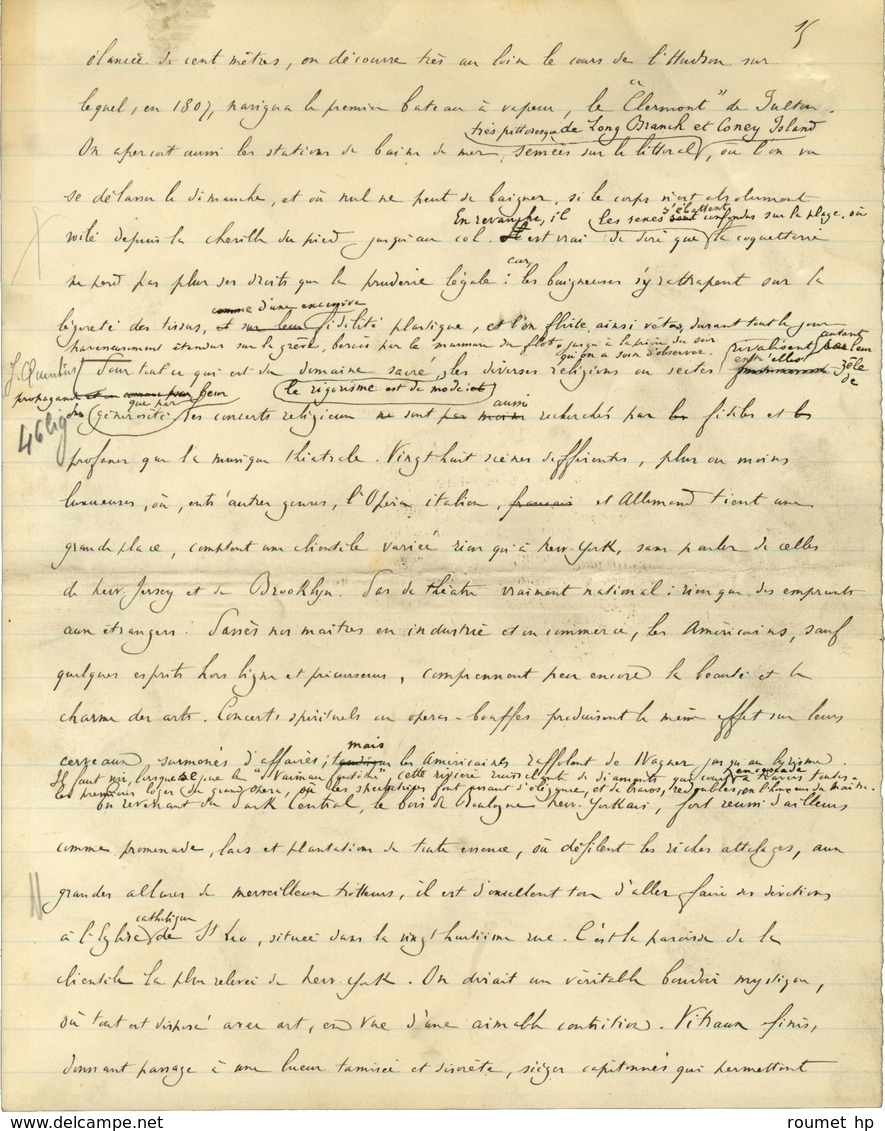 15
élancée de cent mètres, on découvre très au loin le cours de l'Hudson sur
lequel, en 1807, navigua le premier bateau à vapeur, le "Clermont" de Fulton.
très pittoresque de Long Branch et Coney Island
On aperçoit aussi les stations de bains de mer, semées sur le littoral, où l'on va
se délasser le dimanche, et où nul ne peut se baigner, si le corps n'est absolument
En revanche, il les sexes s'ébattent sont confondus sur la plage, où
voilé depuis la cheville du pied jusqu'au col. Il est vrai de dire que la coquetterie
car,
ne perd pas plus ses droits que la pruderie légale : les baigneuses s'y rattrapent sur la
comme d'une excessive
légèreté des tissus, et sur leur fidélité plastique, et l'on flirte, ainsi vêtus, durant tout le jour
paresseusement étendus sur la grève, bercés par le murmure du flot, jusqu'à la prière du soir
qu'on a soin d'observer.
rivalisent autant par leur
J. Quentin
Pour tout ce qui est du domaine sacré, les diverses religions ou sectes
entr'elles zèle
de
propagande et on comme pour leur
que par
le rigorisme est de mode; et
46 lig
des générosité les concerts religieux ne sont pas moins aussi recherchés par les fidèles et les
profanes que la musique théâtrale. Vingt huit scènes différentes, plus ou moins
luxueuses, où, entr'autres genres, l'Opéra italien, français et Allemand tient une
grande place, comptent une clientèle variée rien qu'à New-York, sans parler de celles
de New Jersey et de Brooklyn. Pas de théâtre vraiment national : rien que des emprunts
aux étrangers. Passés nos maîtres en industrie et en commerce, les Américains, sauf
quelques esprits hors ligne et précurseurs, comprennent peu encore la beauté et le
charme des arts. Concerts spirituels ou opéras-bouffes produisent le même effet sur leurs
mais
cerveaux surmenés d'affaires; les Américaines raffolent de Wagner, jusqu'au lyrisme.
Il faut voir, lorsque se joue le "Vaisseau fantôme", cette rivière ruisselante de diamants qui court en cascade à travers toutes
les premières loges du grand opera, où les spectatrices font assaut d'élégance, et de bravos, redoublés, en l'honneur du Maître.
En revenant du Park Central, le bois de Boulogne New-Yorkais, fort réussi d'ailleurs
comme promenade, lacs et plantations de toute essence, où défilent les riches attelages, aux
grandes allures de merveilleux trotteurs, il est d'excellent ton d'aller faire ses dévotions
catholique
à l'Eglise de St Leo, située dans la vingt huitième rue. C'est la paroisse de la
clientèle la plus relevée de New-York. On dirait un véritable boudoir mystique,
où tout est disposé avec art, en vue d'une aimable contrition. Vitraux finis,
donnant passage à une lueur tamisée et discrète, sièges capitonnés qui permettent
roumet hp